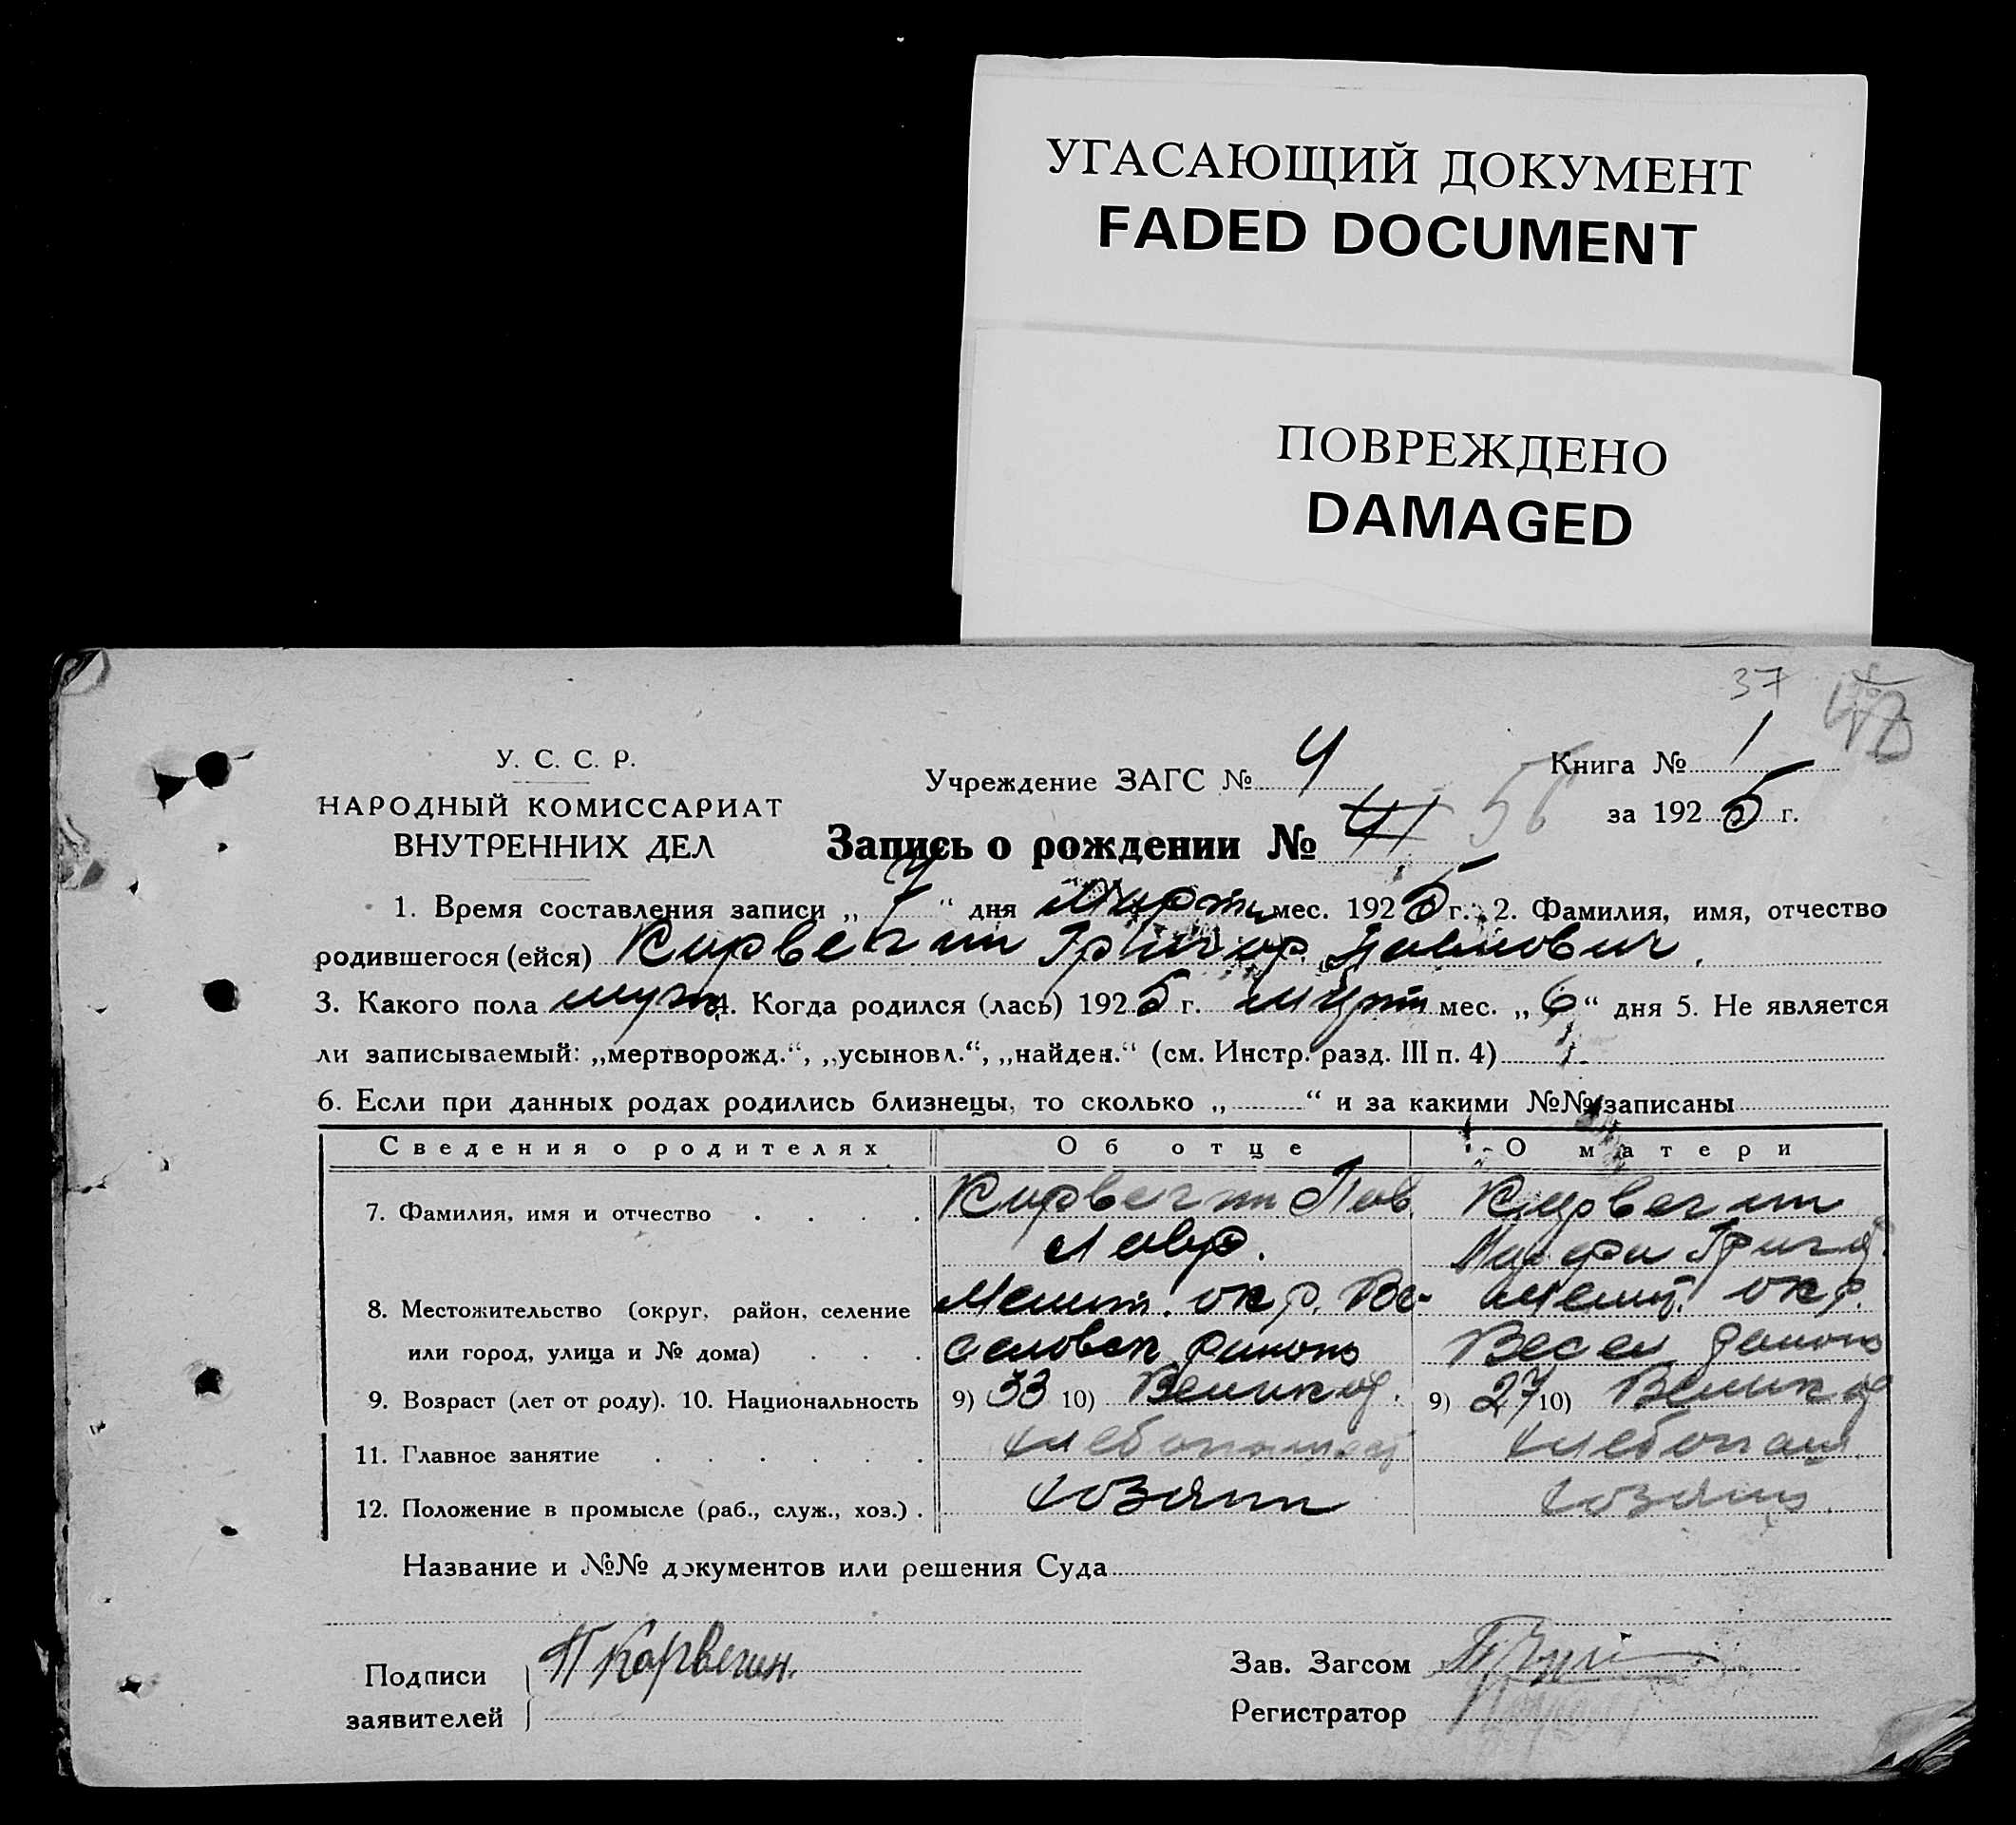 УГАСАЮЩИЙ ДОКУМЕНТ
FADED DOCUMENT
ПОВРЕЖДЕНО
DAMAGED
37
У. С. С. Р.
НАРОДНЫЙ КОМИССАРИАТ
ВНУТРЕННИХ ДЕЛ
Учреждение ЗАГС № 4
Книга № 1
за 1925 г.
Запись о рождении №
1. Время составления записи „ 7 “ дня Марта мес. 1925 г. 2. Фамилия, имя, отчество
родившегося (ейся) Григор. Павлович
3. Какого пола муж. 4. Когда родился (лась) 1925 г. Март мес. „ 6 “ дня 5. Не является
ли записываемый: „мертворожд.“, „усыновл.“, „найден.“ (см. Инстр. разд. III п. 4)
6. Если при данных родах родились близнецы, то сколько „ “ и за какими №№ записаны
Сведения о родителях Об отце О матери
7. Фамилия, имя и отчество Пав.
Лавр. Григ.
8. Местожительство (округ, район, селение Мелит. окр. Ве- Мелит. окр.
или город, улица и № дома) селовск района Весел района
9. Возраст (лет от роду). 10. Национальность 9) 33 10) Великор. 9) 27 10) Великор
11. Главное занятие хлебопашец хлебопаш
12. Положение в промысле (раб., служ., хоз.) хозяин
Название и №№ документов или решения Суда
Подписи
заявителей
Зав. Загсом
Регистратор